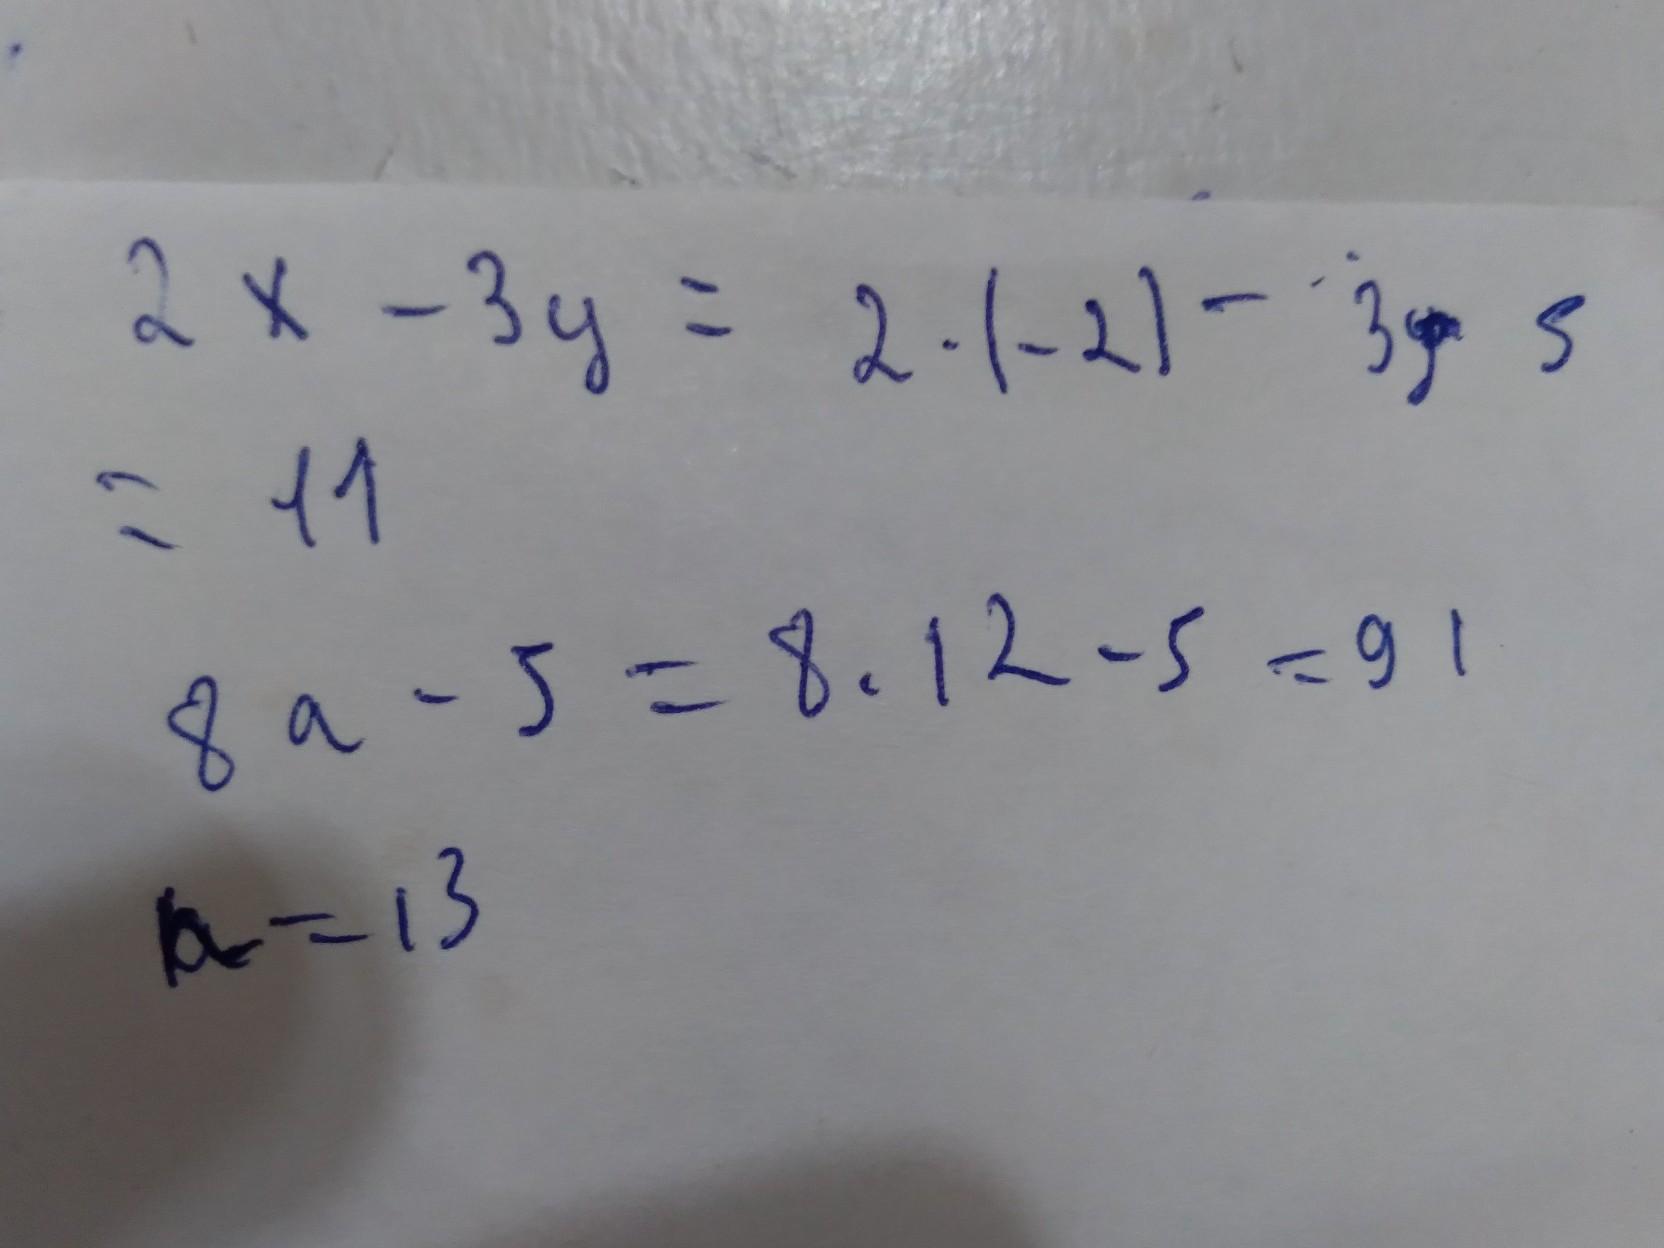 2x - 3y = 2·(-2) - 3y 5
= 11
8a - 5 = 8.12 - 5 = 91
a = 13